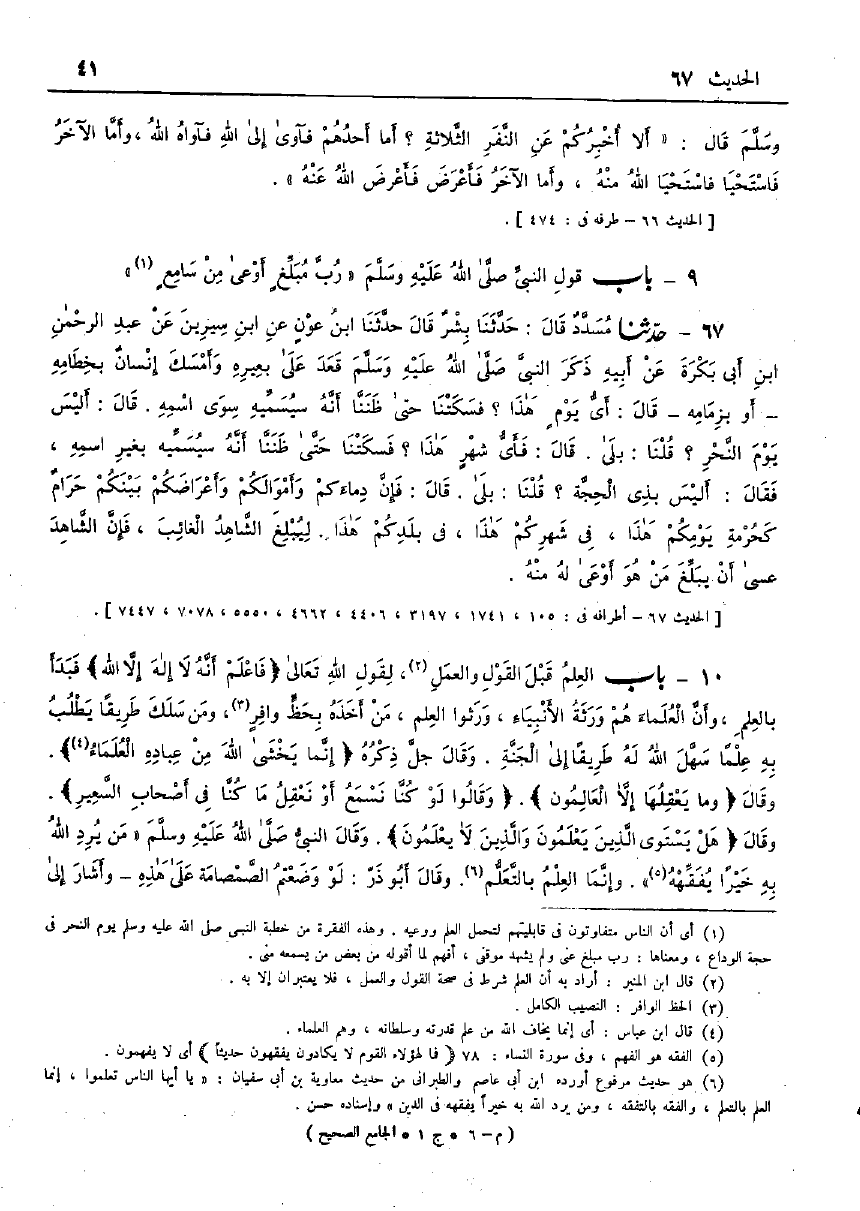 الحديث ٦٧ ٤١
وَسَلَّمَ قَال : « أَلا أُخْبِرُكُمْ عَنِ النَّفَرِ الثَّلاثةِ ؟ أما أَحدُهُمْ فَآوىٰ إلىٰ اللهِ فَآواهُ اللهُ ، وأَمَّا الآخَرُ
فَاسْتَحْيَا فاسْتَحْيَا اللهُ منْهُ ، وأما الآخَرُ فَأَعْرَضَ فَأَعْرضَ اللهُ عَنْهُ » .
[ الحديث ٦٦ – طرفه فى : ٤٧٤ ] .
٩ – باب قولِ النبيِّ صلَّىٰ اللهُ عَلَيْهِ وسَلَّمَ « رُبَّ مُبَلَّغٍ أَوْعىٰ مِنْ سَامِعٍ (١) »
٦٧ – حدّثنا مُسَدَّدٌ قَالَ : حَدَّثَنَا بِشْرٌ قَالَ حدَّثَنَا ابنُ عوْنٍ عنِ ابنِ سِيرينَ عَنْ عبدِ الرحْمٰنِ
ابنِ أبى بَكْرَةَ عَنْ أَبيهِ ذَكَرَ النبيَّ صَلَّىٰ اللهُ عَلَيْهِ وَسَلَّمَ قَعَدَ عَلَىٰ بعِيرِهِ وَأَمْسَكَ إنْسانٌ بخِطامِهِ
– أو بزِمامِه – قَالَ : أَىُّ يَوْمٍ هَٰذَا ؟ فسَكَتْنَا حتىٰ ظَنَنَّا أنَّهُ سيُسَمِّيهِ سِوَى اسْمِهِ . قَالَ : أَلَيْسَ
يَوْمَ النَّحْرِ ؟ قُلْنَا : بلَىٰ . قَالَ : فَأَىُّ شهْرٍ هَٰذَا ؟ فَسكَتْنَا حَتَّىٰ ظَنَنَّا أَنَّهُ سيُسَمِّيه بغيرِ اسمِهِ ،
فَقَالَ : أَلَيْسَ بذِى الْحِجَّة ؟ قُلْنَا : بلَىٰ . قَالَ : فَإِنَّ دِماءكمْ وَأَمْوَالَكُمْ وَأَعْرَاضَكُمْ بَيْنَكُمْ حَرَامٌ
كَحُرْمةِ يَوْمِكُمْ هَٰذَا ، فِى شَهرِكُمْ هَٰذَا ، فى بلَدِكُمْ هَٰذَا . لِيُبْلِغَ الشَّاهدُ الْغائبَ ، فَإِنَّ الشَّاهِدَ
عسىٰ أَنْ يبَلِّغَ مَنْ هُوَ أَوْعَىٰ له منْهُ .
[ الحديث ٦٧ – أطرافه فى : ١٠٥ ، ١٧٤١ ، ٣١٩٧ ، ٤٤٠٦ ، ٤٦٦٢ ، ٥٥٥٠ ، ٧٠٧٨ ، ٧٤٤٧ ] .
١٠ – باب العِلمُ قَبْلَ القَوْلِ والعملِ (٢) ، لِقَولِ اللهِ تَعَالىٰ ﴿ فَاعْلَمْ أَنَّهُ لَا إِلٰهَ إلَّا الله ﴾ فَبَدَأَ
بالعِلمِ ، وأنَّ الْعُلَماءَ هُمْ وَرَثَةُ الأَنْبِيَاء ، وَرَثوا العِلم ، مَنْ أَخَذَهُ بِحَظٍّ وافِرٍ (٣) ، ومَن سَلَكَ طَرِيقًا يَطْلُبُ
بِهِ عِلْمًا سَهَّلَ اللهُ لَهُ طَرِيقًا إلىٰ الْجَنَّةِ . وَقَالَ جلَّ ذِكْرُهُ ﴿ إنَّما يَخْشَىٰ اللهَ مِنْ عِبادِهِ الْعُلَمَاءُ (٤) ﴾ .
وقالَ ﴿ وما يَعْقِلُهَا إلَّا الْعَالِمُون ﴾ . ﴿ وَقَالُوا لَوْ كُنَّا نَسْمَعُ أَوْ نَعْقِلُ مَا كُنَّا فِى أَصْحابِ السَّعِير ﴾ .
وقالَ ﴿ هَلْ يَسْتَوى الَّذِينَ يَعْلَمُونَ وَالَّذِينَ لَا يعْلَمُونَ ﴾ . وَقَالَ النبيُّ صَلَّىٰ اللهُ عَلَيْهِ وسلَّمَ « مَن يُرِدِ اللهُ
بِهِ خَيْرًا يُفَقِّهْهُ (٥) » . وإنَّمَا العِلْمُ بالتَّعَلُّم (٦) . وقالَ أَبُو ذَرّ : لَوْ وَضَعْتمُ الصَّمْصامَةَ عَلَىٰ هَٰذِهِ – وأَشَارَ إلىٰ
(١) أى أن الناس متفاوتون فى قابليتهم لتحمل العلم ووعيه . وهذه الفقرة من خطبة النبى صلى الله عليه وسلم يوم النحر فى
حجة الوداع ، ومعناها : رب مبلغ عنى ولم يشهد موقفى ، أفهم لما أقوله من بعض من يسمعه منى .
(٢) قال ابن المنير : أراد به أن العلم شرط فى صحة القول والعمل ، فلا يعتبران إلا به .
(٣) الحظ الوافر : النصيب الكامل .
(٤) قال ابن عباس : أى إنما يخاف الله من علم قدرته وسلطانه ، وهم العلماء .
(٥) الفقه هو الفهم ، وفى سورة النساء : ٧٨ ﴿ فما لهؤلاء القوم لا يكادون يفقهون حديثاً ﴾ أى لا يفهمون .
(٦) هو حديث مرفوع أورده ابن أبى عاصم والطبرانى من حديث معاوية بن أبى سفيان : « يا أيها الناس تعلموا ، إنما
العلم بالتعلم ، والفقه بالتفقه ، ومن يرد الله به خيراً يفقهه فى الدين » وإسناده حسن .
( م – ٦ • ج ١ • الجامع الصحيح )